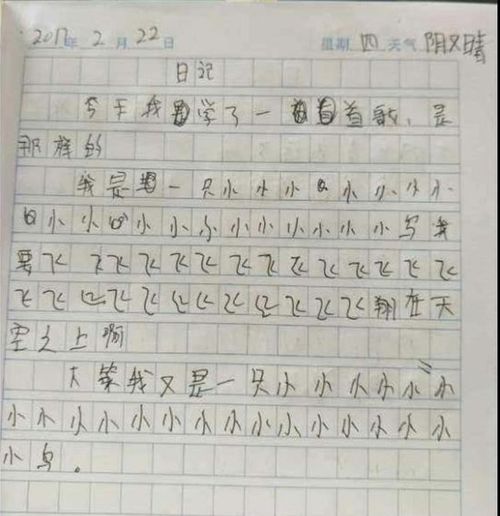 2017年2月22日 星期四 天气阴又晴
日记
今天我学了一首歌，是
那样的
我是一只小小小小小小小
小小小小小小小小小小小小鸟我
要飞飞飞飞飞飞飞飞飞飞飞飞飞
飞飞飞飞飞飞飞飞飞飞飞翔在天
空之上啊
大笨我又是一只小小小小小小
小小小小小小小小小小小小小小小
小鸟。